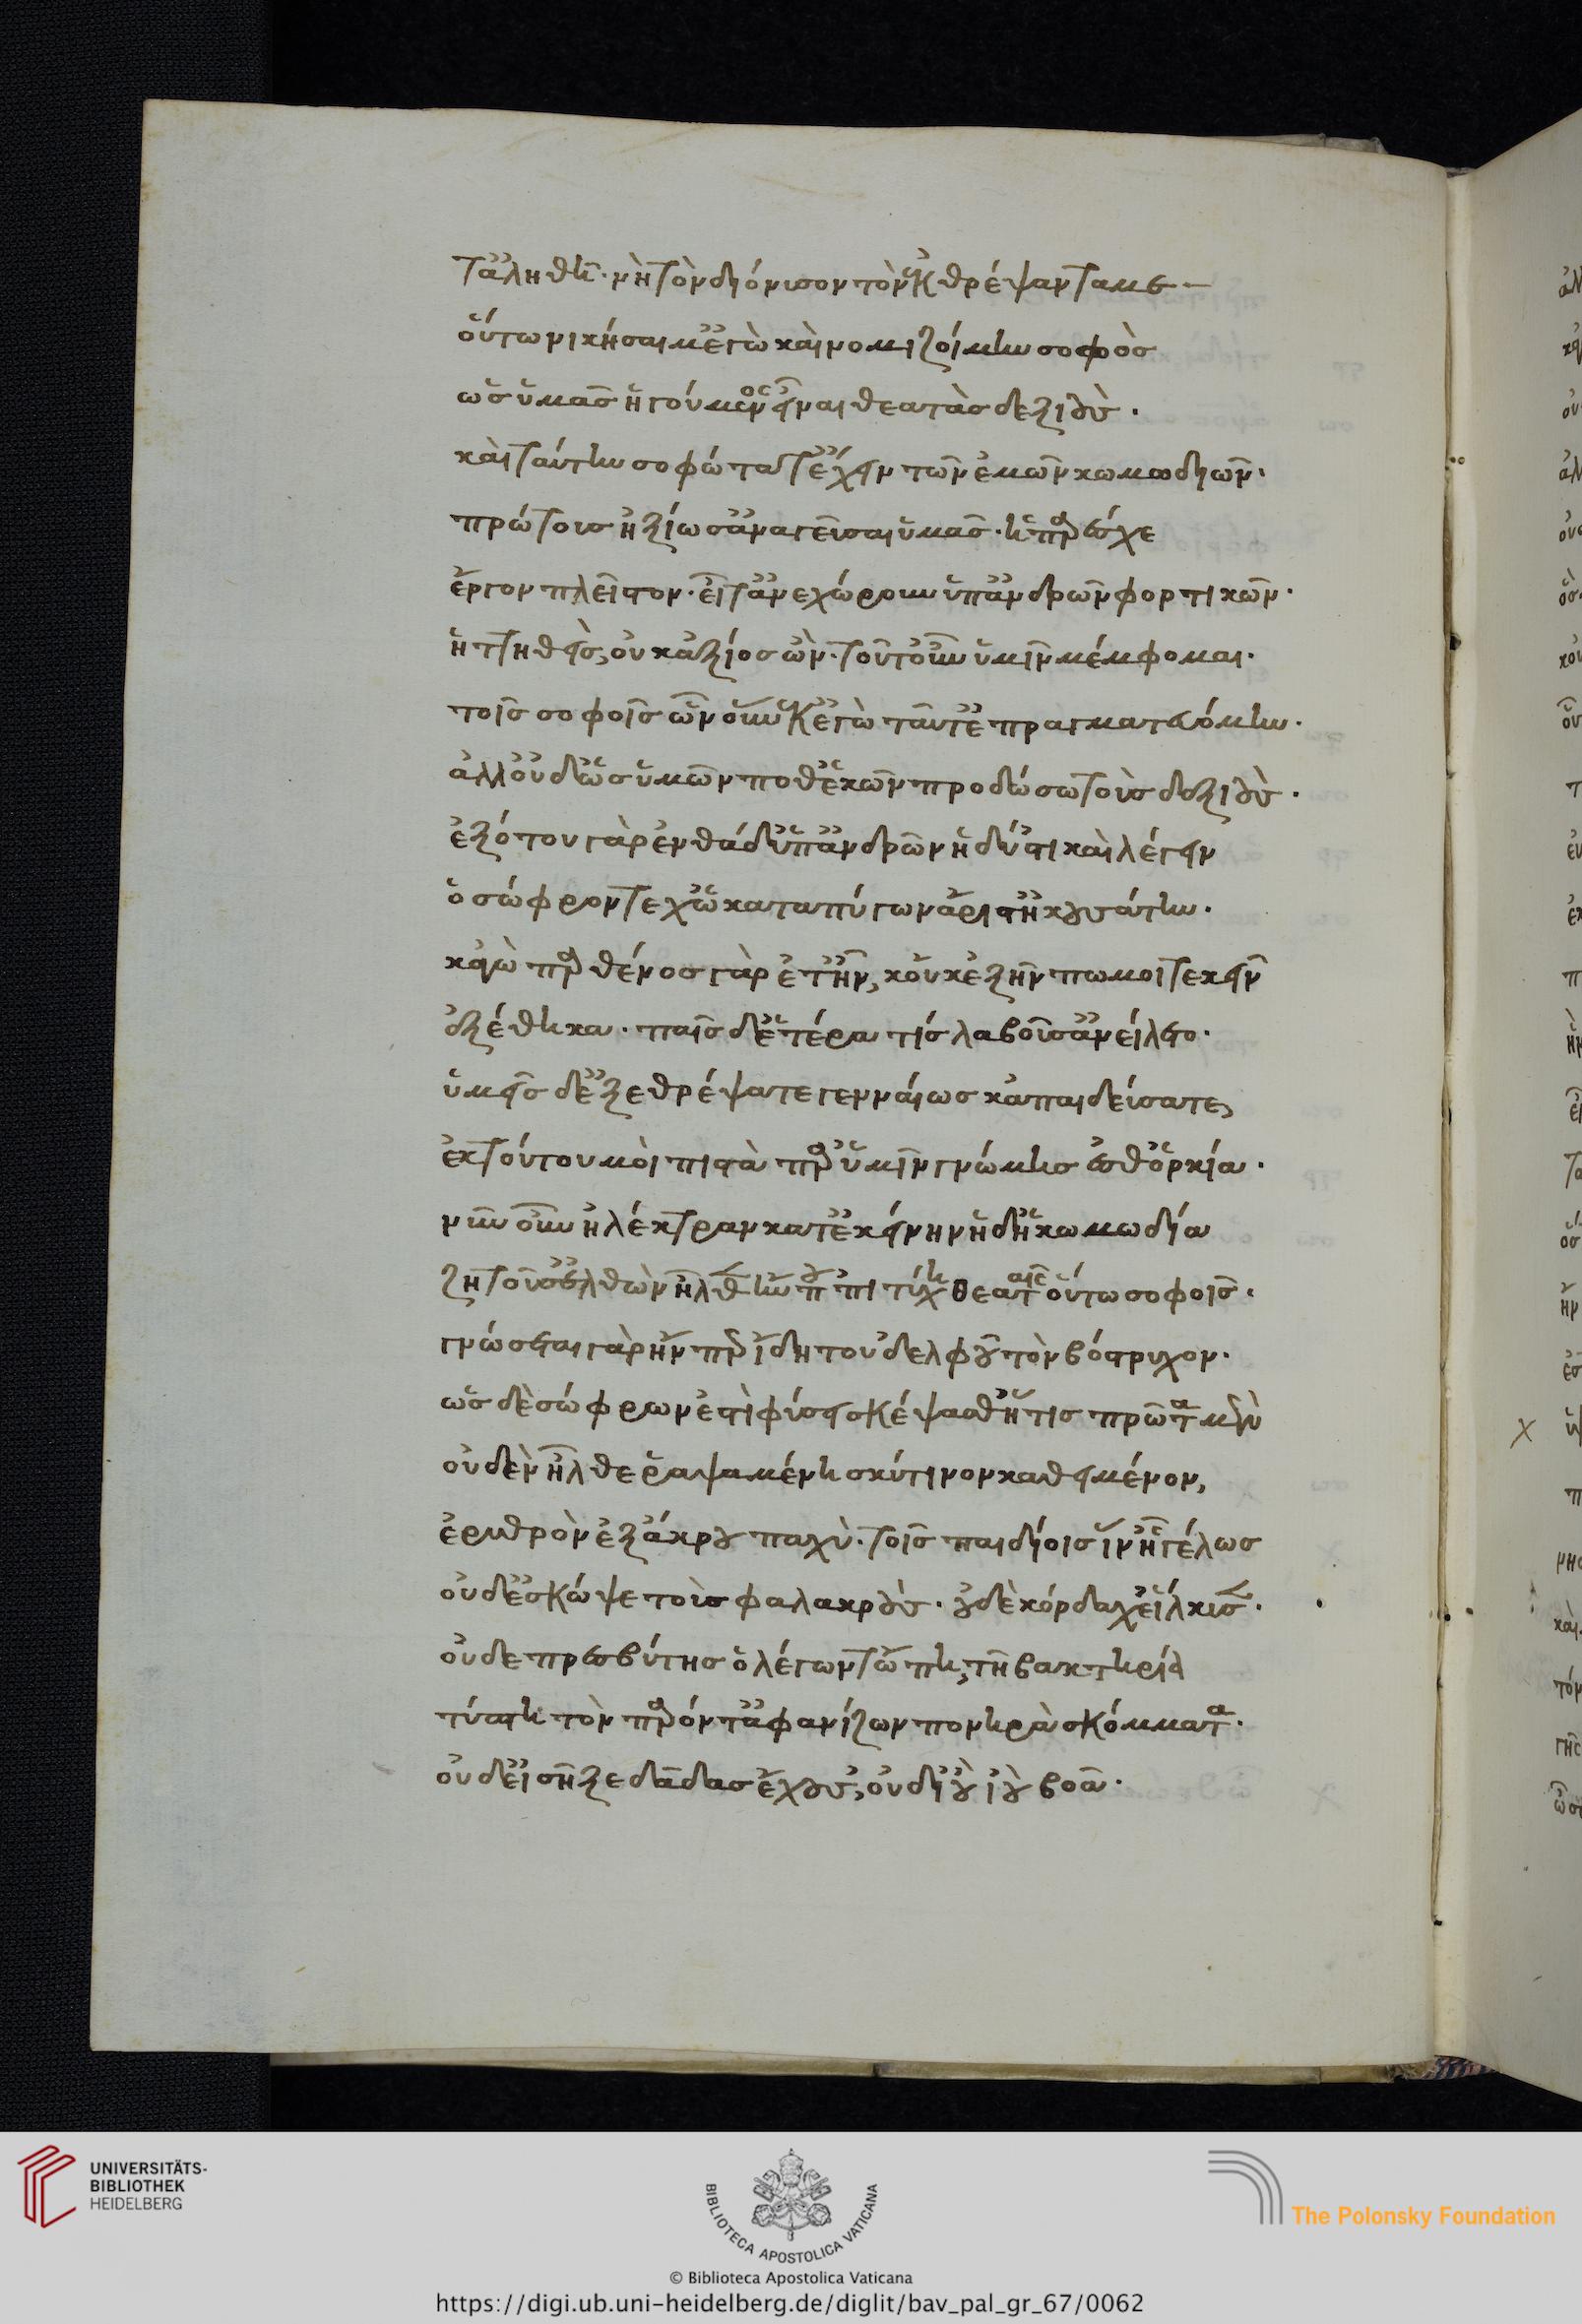 τἀληθῆ· νὴ τὸν διόνυσον τὸν ἐκθρέψαντά με
οὕτω νικήσαιμ' ἐγὼ καὶ νομιζοίμην σοφὸς
ὡς ὑμᾶς ἡγούμενος εἶναι θεατὰς δεξιοὺς·
καὶ ταύτην σοφώτατ' ἔχειν τῶν ἐμῶν κωμωδιῶν·
πρώτους ἠξίωσ' ἀναγεῦσαι ὑμᾶς· ἣ παρέσχε
ἔργον πλεῖστον· εἶτ' ἀνεχώρουν ὑπ' ἀνδρῶν φορτικῶν·
ἡττηθεὶς, οὐκ ἄξιος ὢν· τοῦτ' οὖν ὑμῖν μέμφομαι·
τοῖς σοφοῖς ὧν οὕνεκ' ἐγὼ ταῦτ' ἐπραγματευόμην·
ἀλλ' οὐδ' ὣς ὑμῶν ποθ' ἑκὼν προδώσω τοὺς δεξιοὺς·
ἐξ ὅτου γὰρ ἐνθάδ' ὑπ' ἀνδρῶν ἡδύ ἐστι καὶ λέγειν
ὁ σώφρων τε χὠ καταπύγων ἄριστ' ἠκουσάτην·
κἀγὼ παρθένος γὰρ ἔτ' ἦν, κοὐκ ἐξῆν πώ μοι τεκεῖν
ἐξέθηκα· παῖς δ' ἑτέρα τίς λαβοῦσ' ἀνείλετο·
ὑμεῖς δ' ἐξεθρέψατε γενναίως κἀπαιδεύσατε,
ἐκ τούτου μοὶ πιστὰ παρ' ὑμῖν γνώμης ἔσθ' ὅρκια·
νῦν οὖν ἠλέκτραν κατ' ἐκείνην ἥδ' ἡ κωμωδία
ζητοῦσ' ἐλθὼν ἦλθ' ἤν που 'πιτύχη θεαταῖς οὕτω σοφοῖς·
γνώσεται γὰρ ἤνπερ ἴδη τοὐδελφοῦ τὸν βόστρυχον·
ὡς δὲ σώφρων ἐστὶ φύσει σκέψασθ' ἥτις πρῶτα μὲν
οὐδὲν ἦλθε ῥαψαμένη σκύτινον καθειμένον,
ἐρυθρὸν ἐξ ἄκρου παχὺ· τοῖς παιδίοις ἵν' ἦ γέλως
οὐδ' ἔσκωψε τοὺς φαλακροὺς· οὐδὲ κόρδαχ' εἵλκυσεν·
οὐδὲ πρεσβύτης ὁ λέγων τἄπη, τῆ βακτηρία
τύπτει τὸν παρόντ' ἀφανίζων πονηρὰ σκόμματα·
οὐδ' εἰσῆξε δᾶδας ἔχουσ', οὐδ' ἰοὺ ἰοὺ βοᾶ·
UNIVERSITÄTS-
BIBLIOTHEK
HEIDELBERG
BIBLIOTECA APOSTOLICA VATICANA
The Polonsky Foundation
© Biblioteca Apostolica Vaticana
https://digi.ub.uni-heidelberg.de/diglit/bav_pal_gr_67/0062